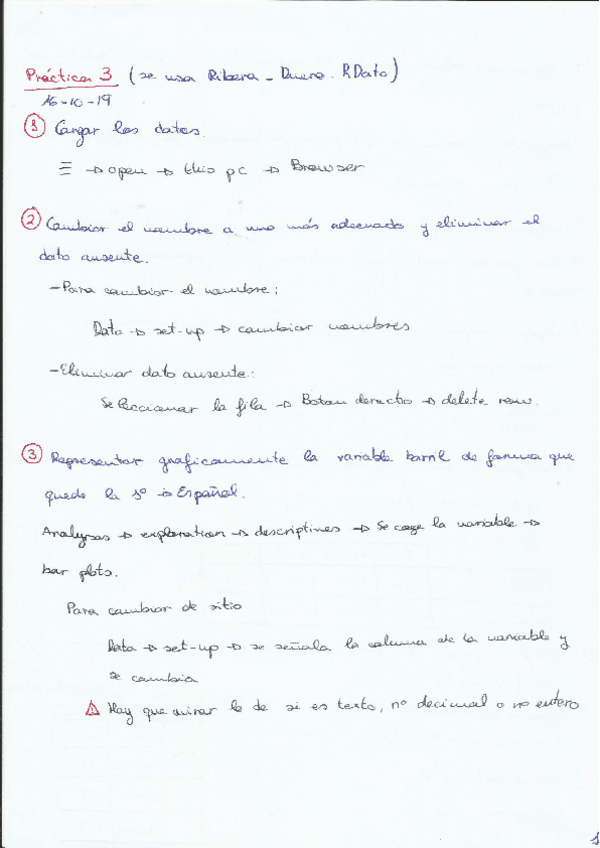 Práctica 3 (se usa Ribera_Duero.RData)
16-10-19
① Cargar los datos.
≡ → open → this pc → Browser
② Cambiar el nombre a uno más adecuado y eliminar el
dato ausente.
-Para cambiar el nombre:
Data → set-up → cambiar nombres
-Eliminar dato ausente:
Seleccionar la fila → Boton derecho → delete row.
③ Representar graficamente la variable barril de forma que
quede la 1º → Español.
Analyses → exploration → descriptives → Se coge la variable →
bar plots.
Para cambiar de sitio
Data → set-up → se señala la columna de la variable y
se cambia
⚠ Hay que mirar lo de si es texto, nº decimal o nº entero
1